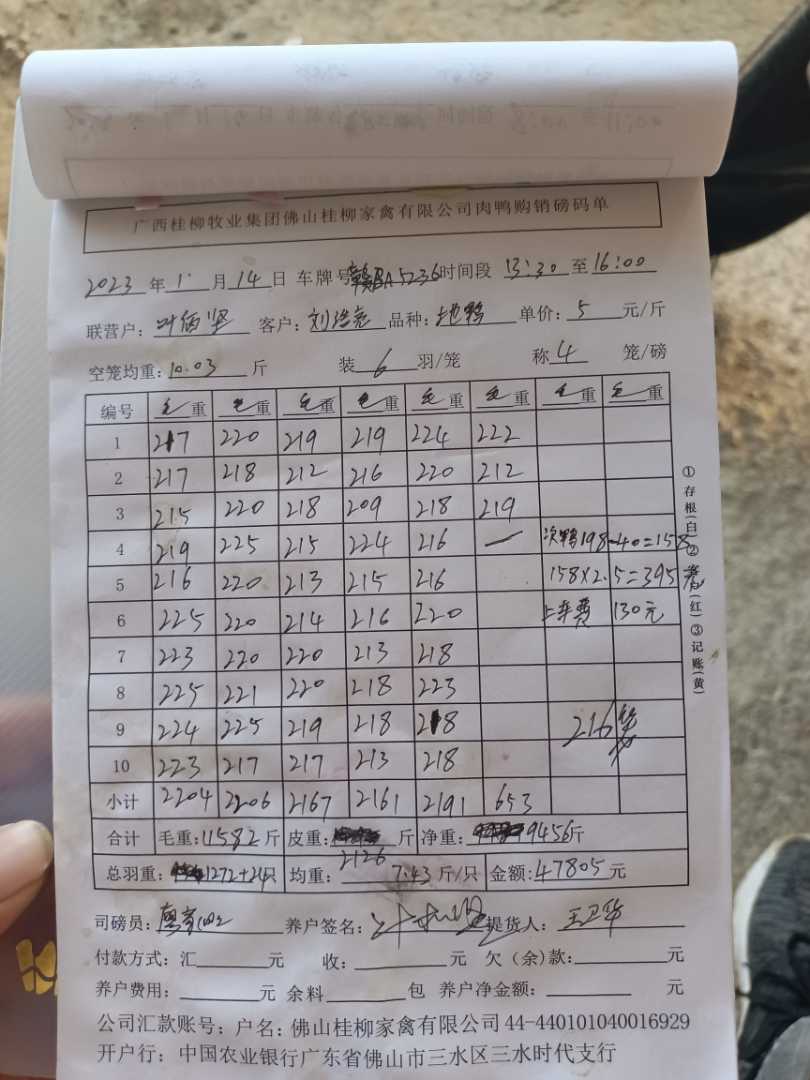 广西桂柳牧业集团佛山桂柳家禽有限公司肉鸭购销磅码单
2023 年 1 月 14 日 车牌号 BA5236 时间段 13:30 至 16:00
联营户: 叶 坚 客户: 刘浩亮 品种: 地鸭 单价: 5 元/斤
空笼均重: 10.03 斤 装 6 羽/笼 称 4 笼/磅
编号 毛重 毛重 毛重 毛重 毛重 毛重 毛重 毛重
1 217 220 219 219 224 222
2 217 218 212 216 220 212
3 215 220 218 209 218 219
4 219 225 215 224 216 — 次鸭198-40=158
5 216 220 213 215 216 158×2.5=395元
6 225 220 214 216 220 上车费 130元
7 223 220 220 213 218
8 225 221 220 218 223
9 224 225 219 218 218 216笼
10 223 217 217 213 218
小计 2204 2206 2167 2161 2191 653
合计 毛重: 11582 斤 皮重: 2126 斤 净重: 9456斤
总羽重: 1272+24只 均重: 7.43 斤/只 金额: 47805 元
司磅员: 养户签名: 提货人: 王卫华
付款方式: 汇 元 收: 元 欠（余）款: 元
养户费用: 元 余料 包 养户净金额: 元
公司汇款账号: 户名: 佛山桂柳家禽有限公司 44-440101040016929
开户行: 中国农业银行广东省佛山市三水区三水时代支行
①存根(白)②客户(红)③记账(黄)